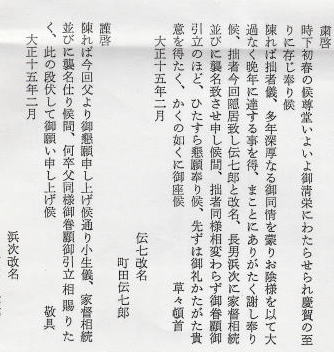 粛啓
時下初春の候尊堂いよいよ御清栄にわたらせられ慶賀の至
りに存じ奉り候
陳れば拙者儀、多年深厚なる御同情を蒙りお陰様を以て大
過なく晩年に達する事を得、まことにありがたく謝し奉り
候、拙者今回隠居致し伝七郎と改名、長男浜次に家督相続
並びに襲名致させ申し候間、拙者同様相変わらず御眷顧御
引立のほど、ひたすら懇願奉り候、先ずは御礼かたがた貴
意を得たく、かくの如くに御座候
草々頓首
大正十五年二月
伝七改名
町田伝七郎
謹啓
陳れば今回父より御懇願申し上げ候通り小生儀、家督相続
並びに襲名仕り候間、何卒父同様御眷顧御引立相賜りた
く、此の段伏して御願い申し上げ候
敬具
大正十五年二月
浜次改名